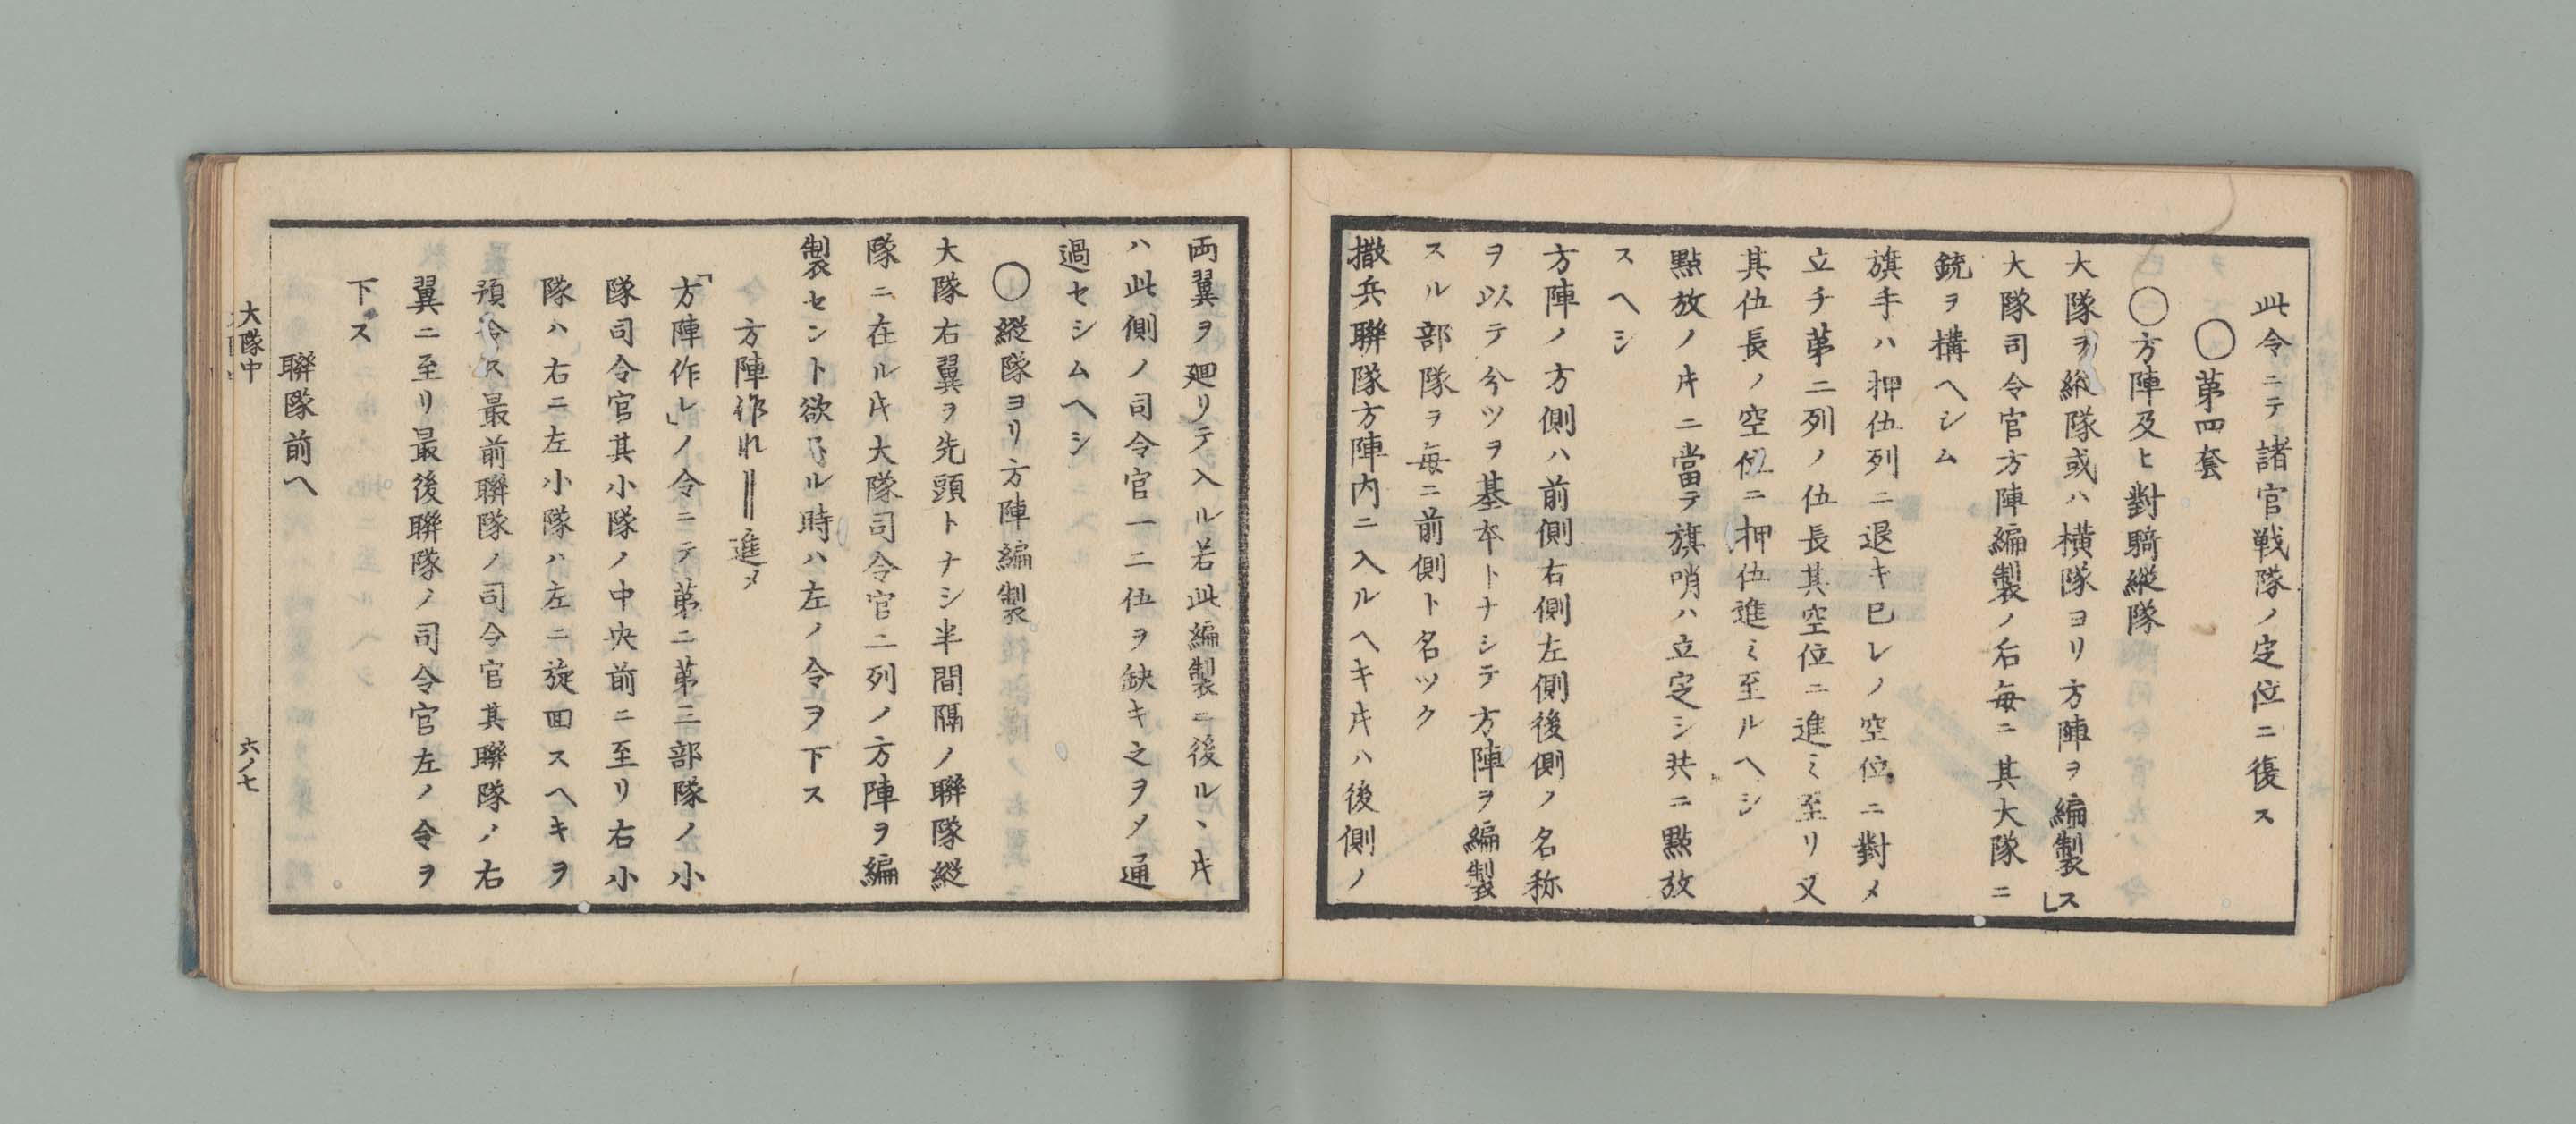 此令ニテ諸官戦隊ノ定位ニ復ス
○第四套
○方陣及ヒ對騎縦隊
大隊ヲ縦隊或ハ横隊ヨリ方陣ヲ編製ス
大隊司令官方陣編製ノ后毎ニ其大隊ニ
銃ヲ搆ヘシム
旗手ハ押伍列ニ退キ已レノ空位ニ對メ
立チ第二列ノ伍長其空位ニ進ミ至リ又
其伍長ノ空位ニ押伍進ミ至ルヘシ
點放ノ𪜈ニ當テ旗哨ハ立定シ共ニ點放
スヘシ
方陣ノ方側ハ前側右側左側後側ノ名称
ヲ以テ分ツヲ基本トナシテ方陣ヲ編製
スル部隊ヲ毎ニ前側ト名ツク
撒兵聯隊方陣内ニ入ルヘキ𪜈ハ後側ノ
両翼ヲ廻リテ入ル若此編製ニ後ルヽ𪜈
ハ此側ノ司令官一二伍ヲ缺キ之ヲメ通
過セシムヘシ
○縦隊ヨリ方陣編製
大隊右翼ヲ先頭トナシ半間隔ノ聯隊縦
隊ニ在ル𪜈大隊司令官二列ノ方陣ヲ編
製セント欲スル時ハ左ノ令ヲ下ス
方陣作れ‖進メ
「方陣作レ」ノ令ニテ第二第三部隊ノ小
隊司令官其小隊ノ中央前ニ至リ右小
隊ハ右ニ左小隊ハ左ニ旋回スヘキヲ
預令ス最前聯隊ノ司令官其聯隊ノ右
翼ニ至リ最後聯隊ノ司令官左ノ令ヲ
下ス
聯隊前へ
大隊中
六ノ七